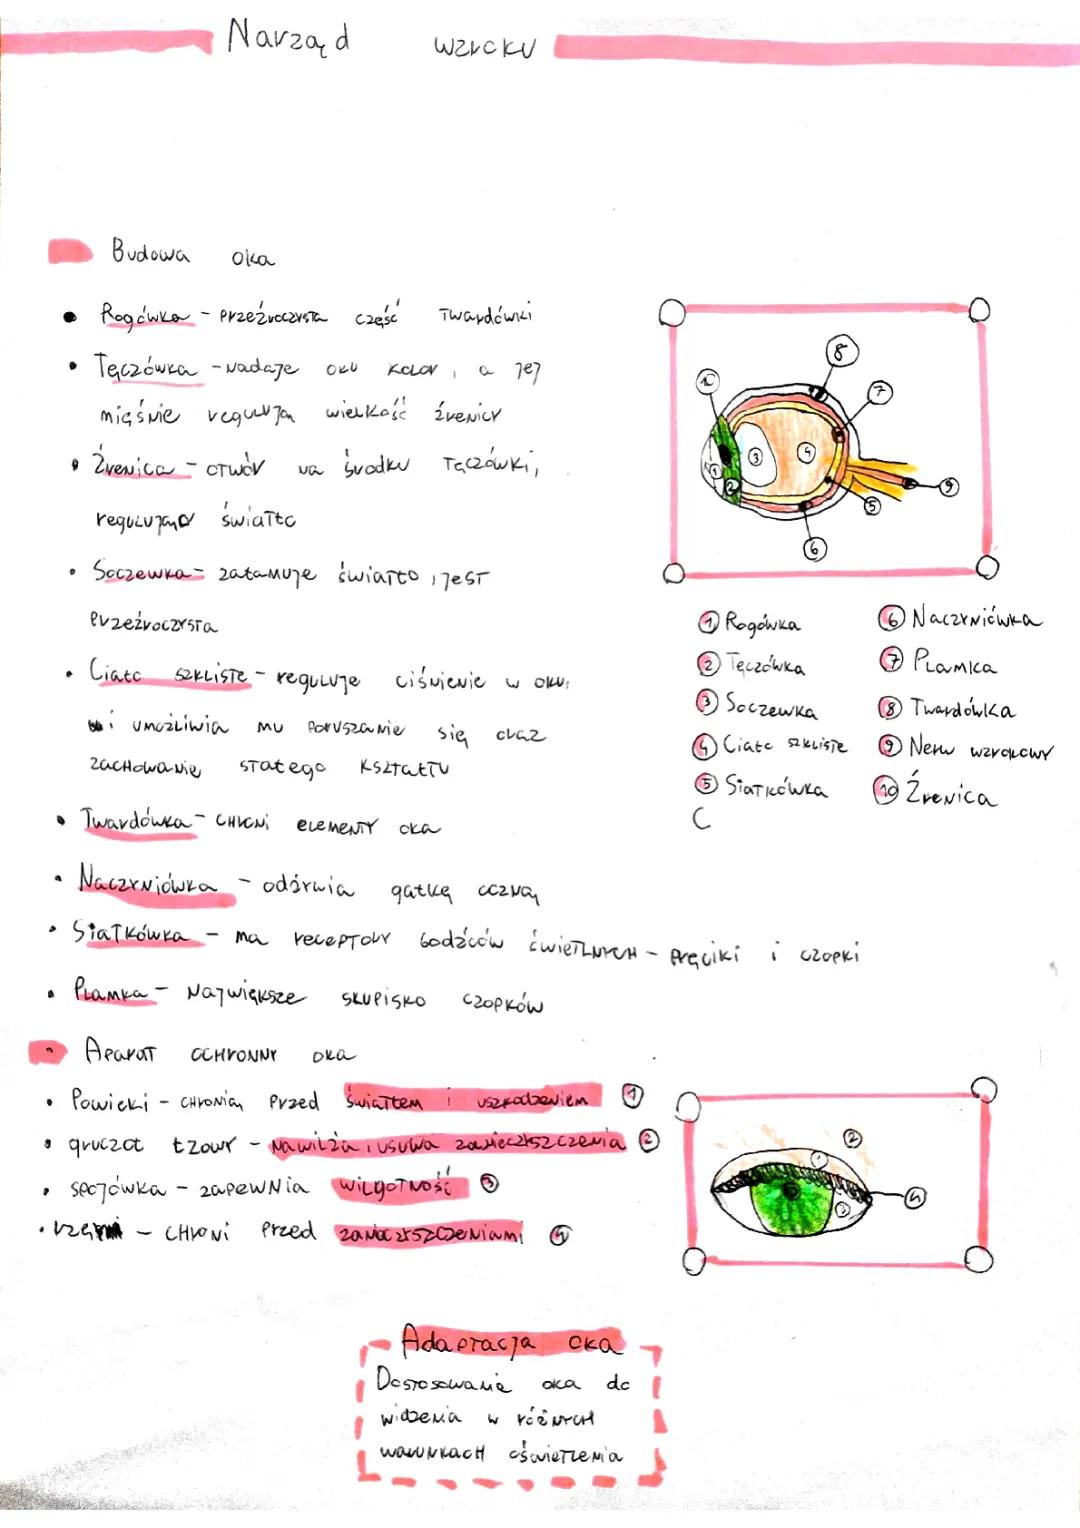 Narząd wzroku
Budowa oka
Rogówka - przeźroczysta część twardówki
Tęczówka - nadaje oku kolor, a jej
mięśnie regulują wielkość źrenicy
Źrenica - otwór na środku tęczówki,
regulując światło
Soczewka - załamuje światło, jest
przeźroczysta
Ciało szkliste - reguluje ciśnienie w oku,
i umożliwia mu poruszanie się oraz
zachowanie stałego kształtu
Twardówka - chroni elementy oka
Naczyniówka - odżywia gałkę oczną
Siatkówka - ma receptory bodźców świetlnych - pręciki i czopki
Plamka - największe skupisko czopków
Aparat ochronny oka
Powieki - chronią przed światłem i uszkodzeniem 1
gruczoł łzowy - nawilża, usuwa zanieczyszczenia 2
spojówka - zapewnia wilgotność 3
rzęsy - chroni przed zanieczyszczeniami 4
Adaptacja oka
Dostosowanie oka do
widzenia w różnych
warunkach oświetlenia
8
10
7
1
2
3
4
9
5
6
1 Rogówka
2 Tęczówka
3 Soczewka
4 Ciało szkliste
5 Siatkówka
C
6 Naczyniówka
7 Plamka
8 Twardówka
9 Nerw wzrokowy
10 Źrenica
2
1
3
4